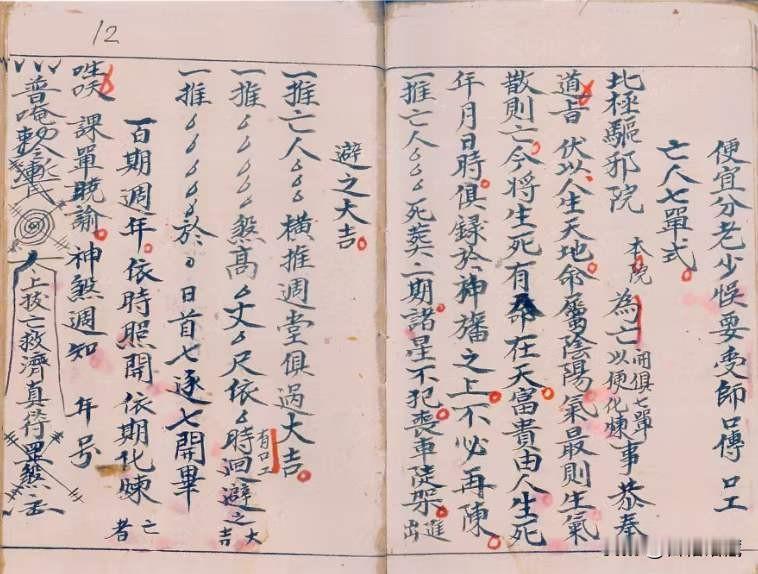 便宜分老少悞要師口傳 口工
亡人七單式
北極驅邪院 本院 為亡 俱七單 以便化煉 事恭奉
道旨 伏以人生天地命屬陰陽氣最則生氣
散則亡今將生死有命在天富貴由人生死
年月日時俱錄於神旛之上不必再陳
一推亡人々々々死葬二期諸星不犯喪車徒架 進出
12
避之大吉
一推亡人々々々橫推週堂俱過大吉
一推々々々々々煞高々丈々尺依々時迴避之大吉 有口工
一推々々々々々於々日首七逐七開畢
百期週年依時照開依期化煉 亡者
課單曉諭神煞週知 年号
普唵勅令 上拔亡救濟真符罡煞